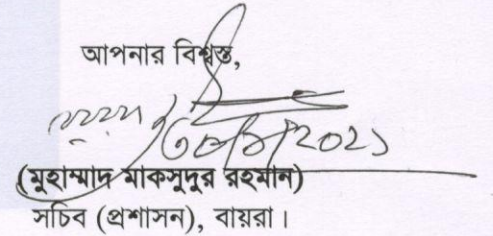 আপনার বিশ্বস্ত,
(মুহাম্মাদ মাকসুদুর রহমান)
সচিব (প্রশাসন), বায়রা।